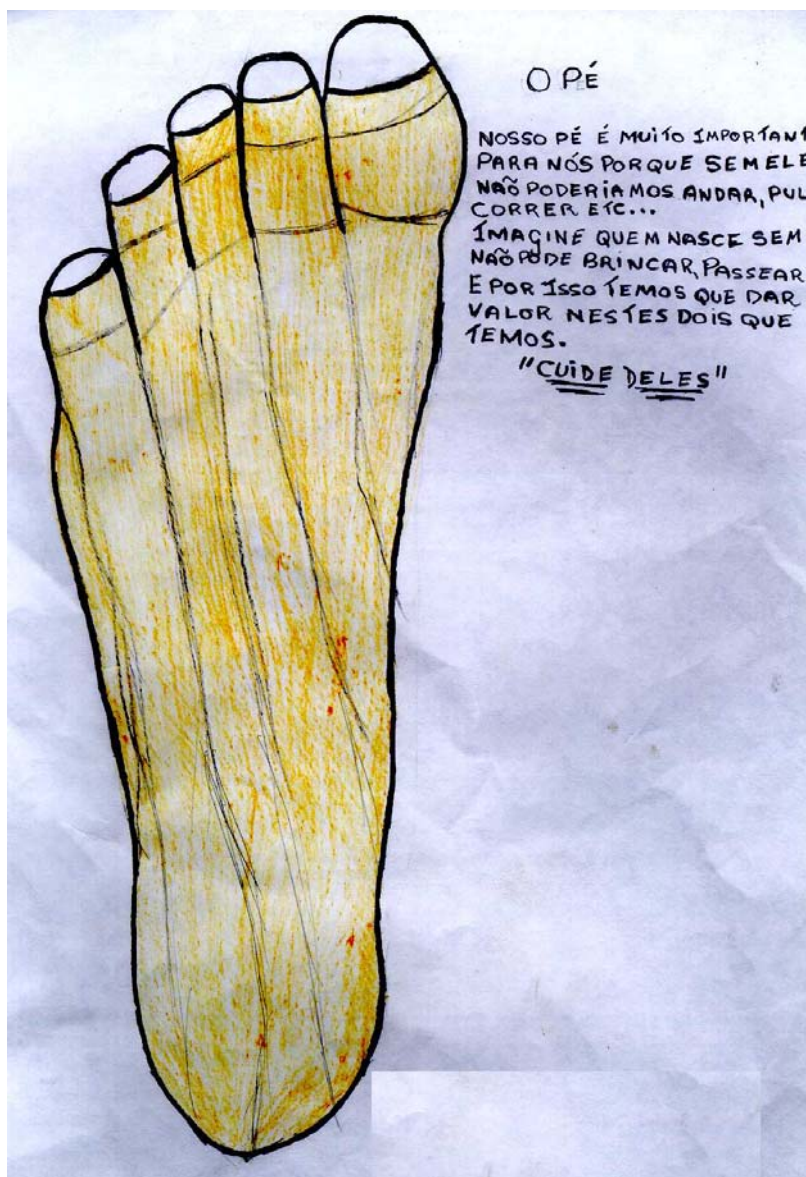 O PÉ
NOSSO PÉ É MUITO IMPORTANT
PARA NÓS PORQUE SEM ELE
NAÕ PODERIAMOS ANDAR, PUL
CORRER ETC...
IMAGINE QUEM NASCE SEM
NAÕ PODE BRINCAR, PASSEAR
E POR ISSO TEMOS QUE DAR
VALOR NESTES DOIS QUE
TEMOS.
"CUIDE DELES"